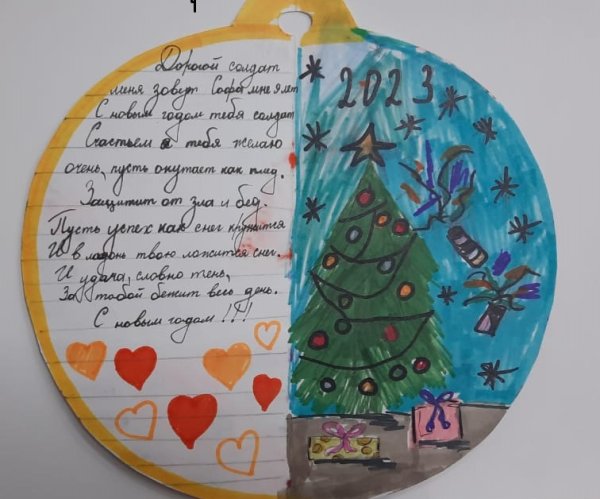 Дорогой солдат
меня зовут Софа мне 9 лет
С новым годом тебя солдат
Счастьем я тебя желаю
очень, пусть окутает как плед.
Защитит от зла и бед.
Пусть успех как снег кружится
И в ладонь твою ложится снег.
И удача, словно тень,
За тобой бежит весь день.
С новым годом !!!
2023